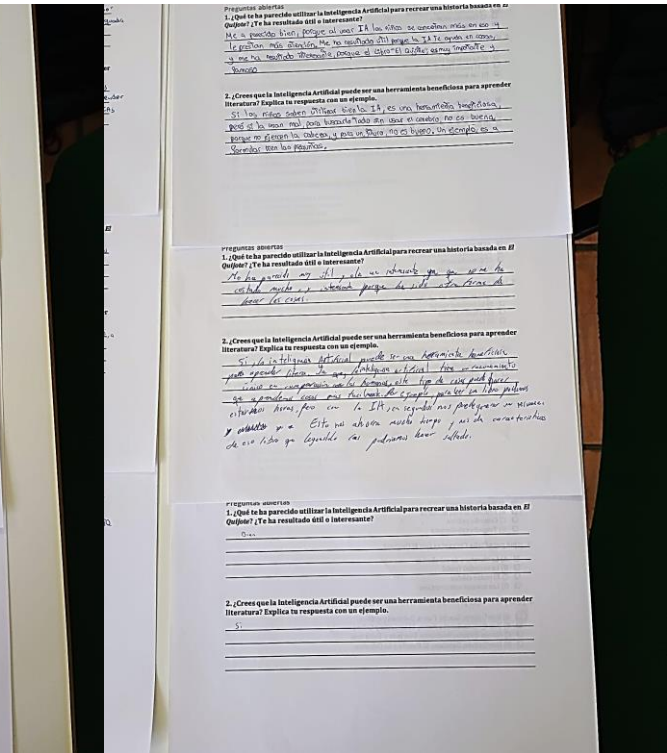 Preguntas abiertas
1. ¿Qué te ha parecido utilizar la Inteligencia Artificial para recrear una historia basada en El
Quijote? ¿Te ha resultado útil o interesante?
Me a parecido bien, porque al usar IA los niños se concentran más en eso y
le prestan más atención. Me ha resultado útil porque la IA te ayuda en cosas,
y me ha resultado interesante, porque el libro "El Quijote" es muy importante y
famoso
2. ¿Crees que la Inteligencia Artificial puede ser una herramienta beneficiosa para aprender
literatura? Explica tu respuesta con un ejemplo.
Si los niños saben utilizar bien la IA, es una herramienta beneficiosa,
pero si la usan mal, para buscarlo todo sin usar el cerebro, no es buena,
porque no ejercen la cabeza, y para un futuro, no es bueno. Un ejemplo, es a
las pequeñas.
Preguntas abiertas
1. ¿Qué te ha parecido utilizar la Inteligencia Artificial para recrear una historia basada en El
Quijote? ¿Te ha resultado útil o interesante?
Me ha parecido muy útil, ya que no me ha
costado mucho porque ha sido otra forma de
hacer las cosas.
2. ¿Crees que la Inteligencia Artificial puede ser una herramienta beneficiosa para aprender
literatura? Explica tu respuesta con un ejemplo.
Si, la inteligencia Artificial puede ser una herramienta beneficiosa
para aprender. Ya que, la inteligencia artificial tiene un
único en comparación con los humanos, este tipo de cosas puede hacer
que aprendamos cosas más facilmente. Por ejemplo, para leer un libro podríamos
estar horas, pero con la IA, en segundos nos puede generar un resumen
y ya. Esto nos ahorra mucho tiempo y nos da características
de ese libro que leyéndolo nos podríamos haber saltado.
Preguntas abiertas
1. ¿Qué te ha parecido utilizar la Inteligencia Artificial para recrear una historia basada en El
Quijote? ¿Te ha resultado útil o interesante?
Bien
2. ¿Crees que la Inteligencia Artificial puede ser una herramienta beneficiosa para aprender
literatura? Explica tu respuesta con un ejemplo.
Si